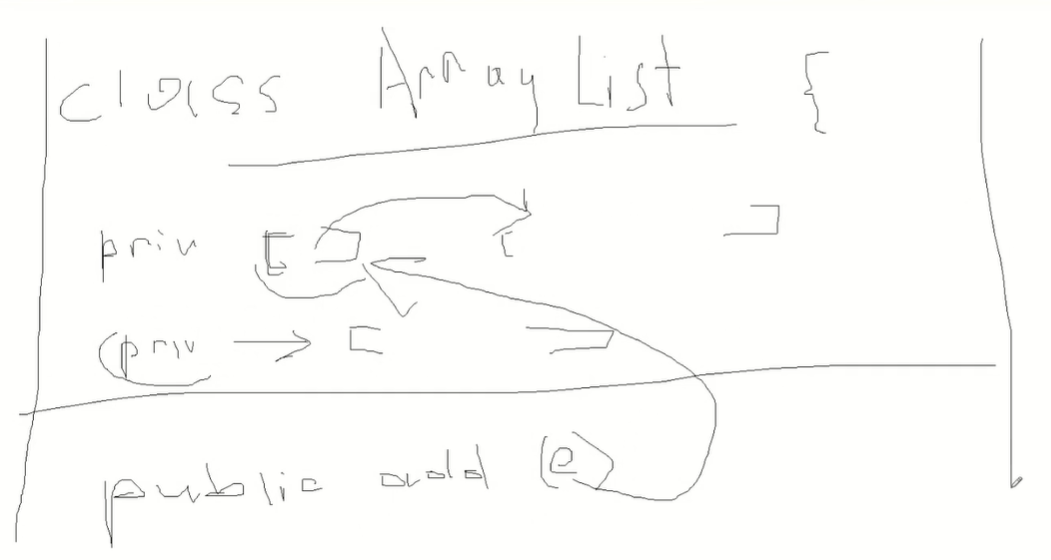 class ArrayList {
priv [ ] [ ]
(priv → [ ]
public add (e)